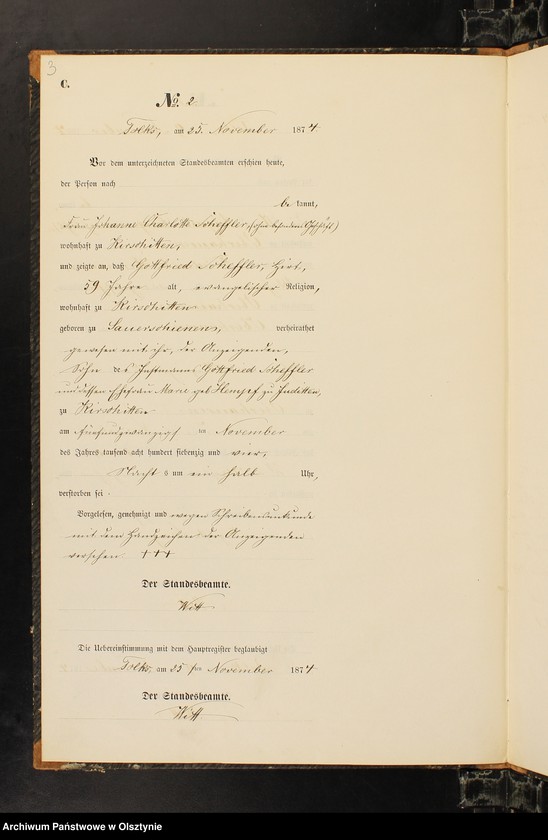 3
C.
No. 2
Tolks, am 25. November 1874.
Vor dem unterzeichneten Standesbeamten erschien heute,
der Person nach
be kannt,
Frau Johanne Charlotte Scheffler (ohne besonderes Geschäft)
wohnhaft zu Kirschitten,
und zeigte an, daß Gottfried Scheffler, Hirt,
59 Jahre alt, evangelischer Religion,
wohnhaft zu Kirschitten
geboren zu Sauerschienen, verheirathet
gewesen mit ihr, der Anzeigenden,
Sohn des Instmanns Gottfried Scheffler
und dessen Ehefrau Marie geb Hempf zu Juditten,
zu Kirschitten
am fünfundzwanzigst ten November
des Jahres tausend acht hundert siebenzig und vier,
Nachts um ein halb Uhr,
verstorben sei.
Vorgelesen, genehmigt und wegen Schreibensunkunde
mit dem Handzeichen der Anzeigenden
versehen +++
Der Standesbeamte.
Witt
Die Uebereinstimmung mit dem Hauptregister beglaubigt
Tolks, am 25 ten November 1874
Der Standesbeamte.
Witt
Archiwum Państwowe w Olsztynie